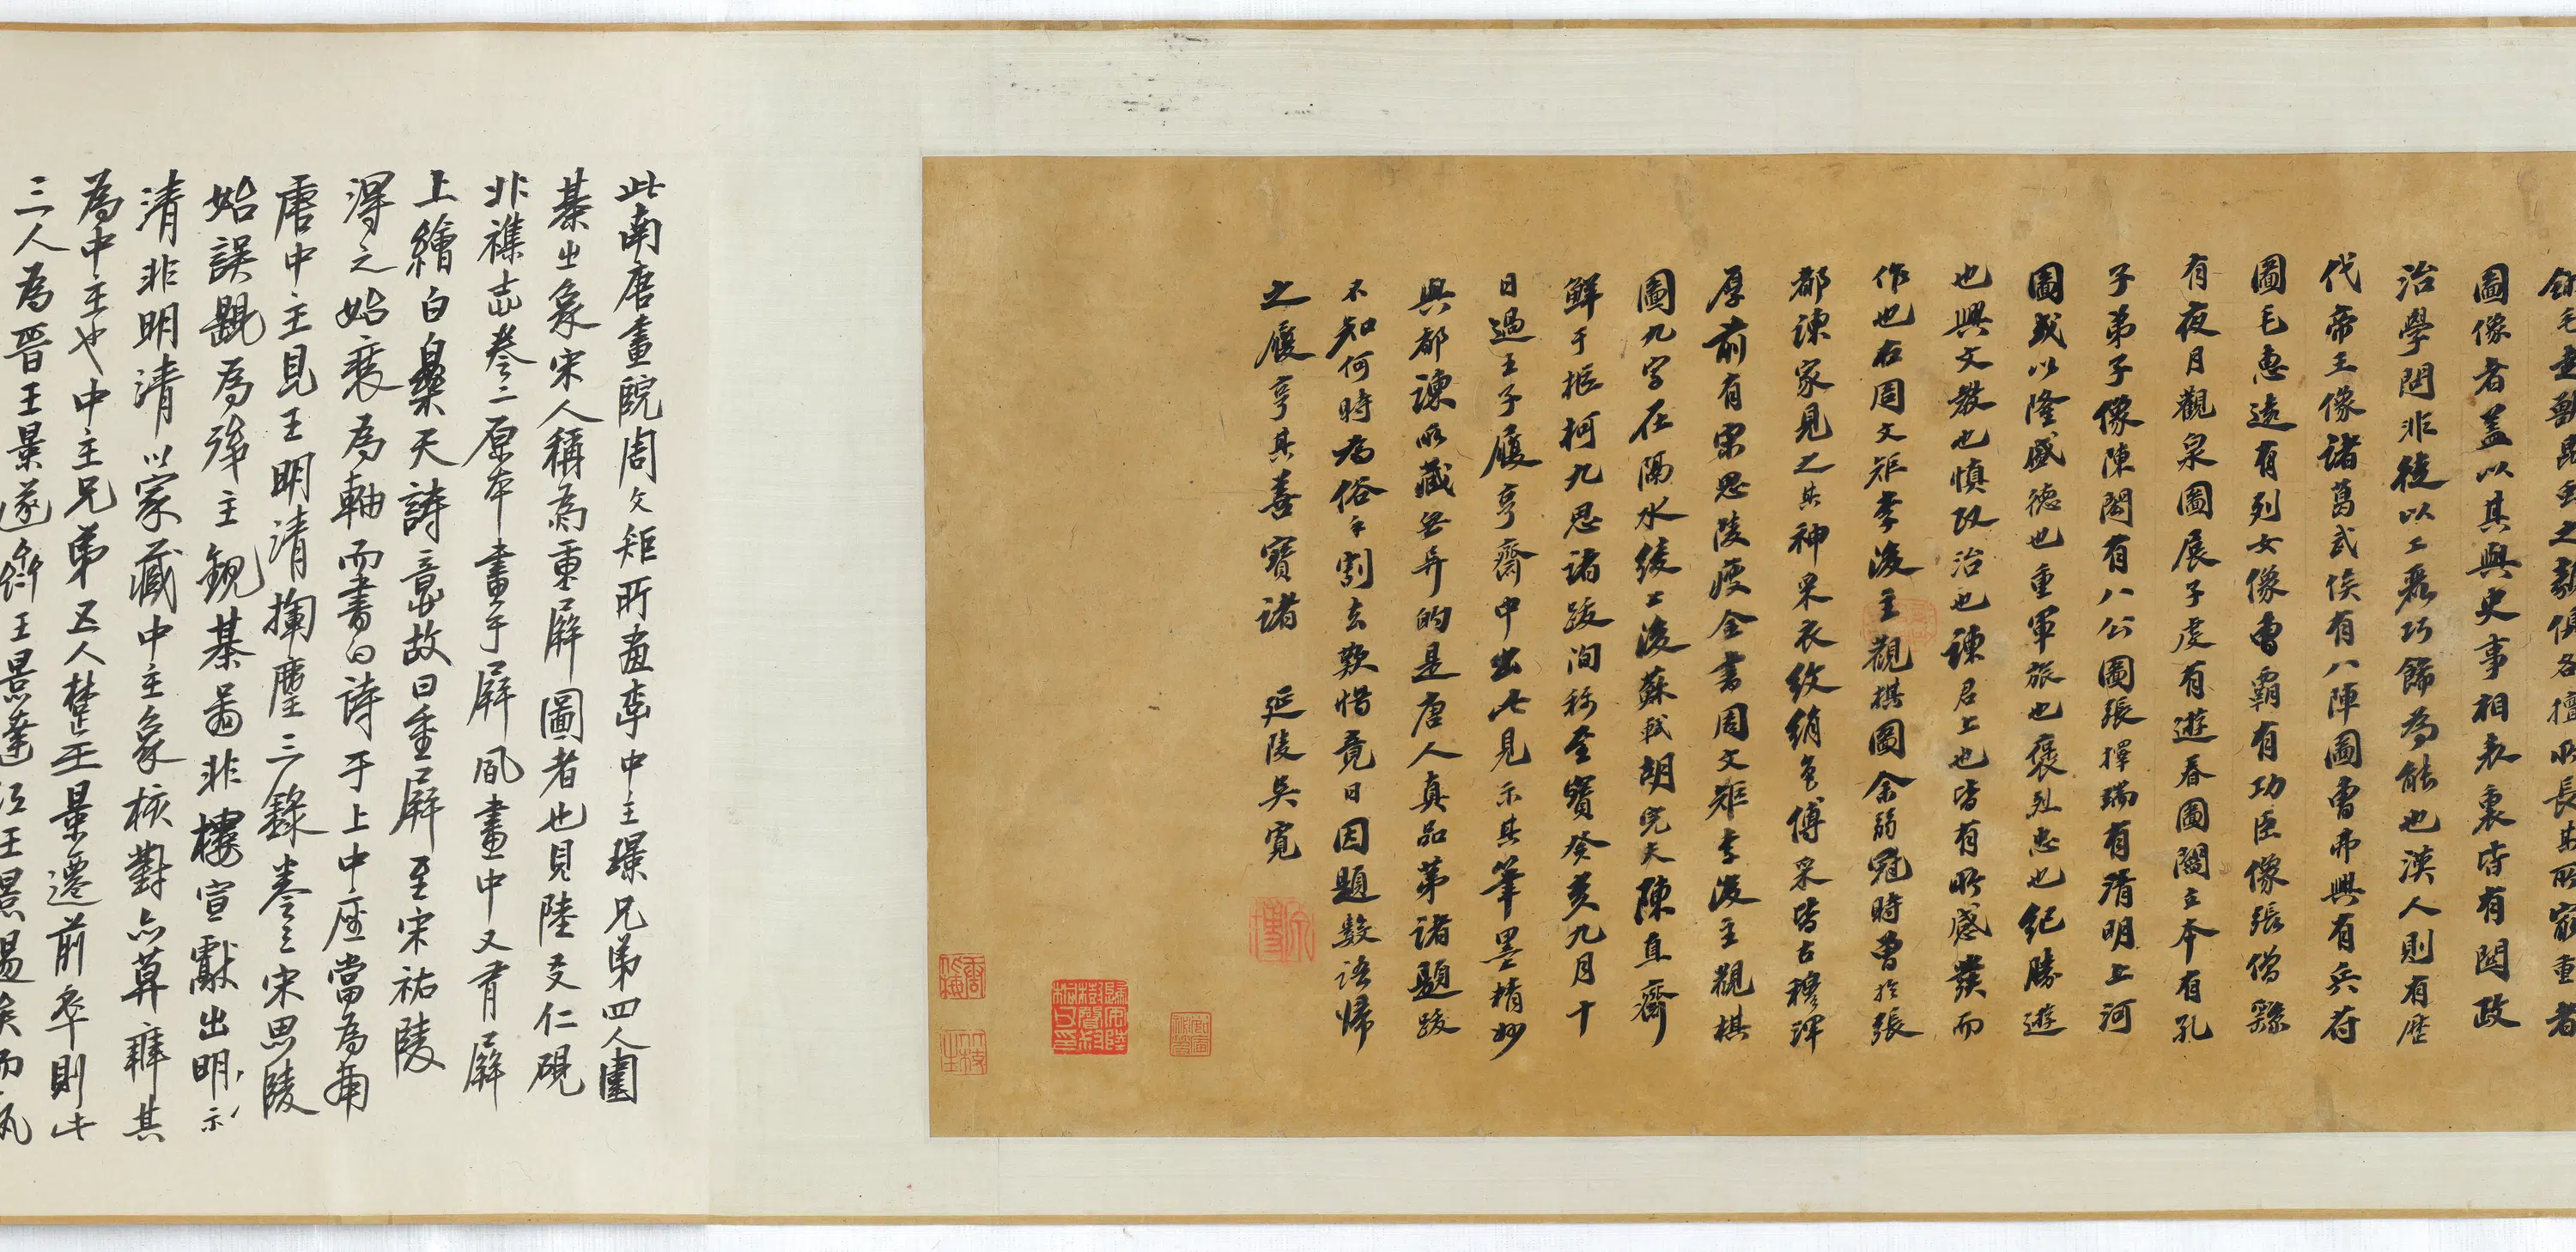 圖像者蓋以其與史事相表裏皆有關政
治學問非徒以工彩巧飾為能也漢人則有歷
代帝王像諸葛武侯有八陣圖曹弗興有兵符
圖毛惠遠有列女像曹霸有功臣像張僧繇
有夜月觀泉圖展子虔有遊春圖閻立本有孔
子弟子像陳閎有八公圖張擇端有清明上河
圖或以隆盛德也重軍旅也褒烈忠也紀勝遊
也興文教也慎政治也諫君上也皆有所感發而
作也右周文矩李後主觀棋圖余弱冠時曾於張
都諫家見之其神采衣紋絹色傅采皆古穆渾
厚前有宋思陵瘦金書周文矩李後主觀棋
圖九字在隔水綾上後蘇軾胡完夫陳直齋
鮮于樞柯九思諸跋洵稱至寶癸亥九月十
日過王子履亨齋中出此見示其筆墨精妙
與都諫所藏無異的是唐人真品第諸題跋
不知何時為俗手割去歎惜竟日因題數語歸
之履亨其善寶諸 延陵吳寬
此南唐畫院周文矩所畫李中主璟兄弟四人圍
棊出象宋人稱為重屏圖者也見陸友仁硯
北襍志卷二原本畫手屏風畫中又有屏
上繪白樂天詩意故曰重屏至宋祐陵
得之始裱為軸而書白詩于上中座當為南
唐中主見王明清揮麈三錄卷三宋思陵
始誤題為後主觀棊圖非樓宣獻出明示
清非明清以家藏中主象核對亦莫辨其
為中主也中主兄弟五人楚王景遷前卒則此
三人為晉王景遂齊王景達江王景逷矣而